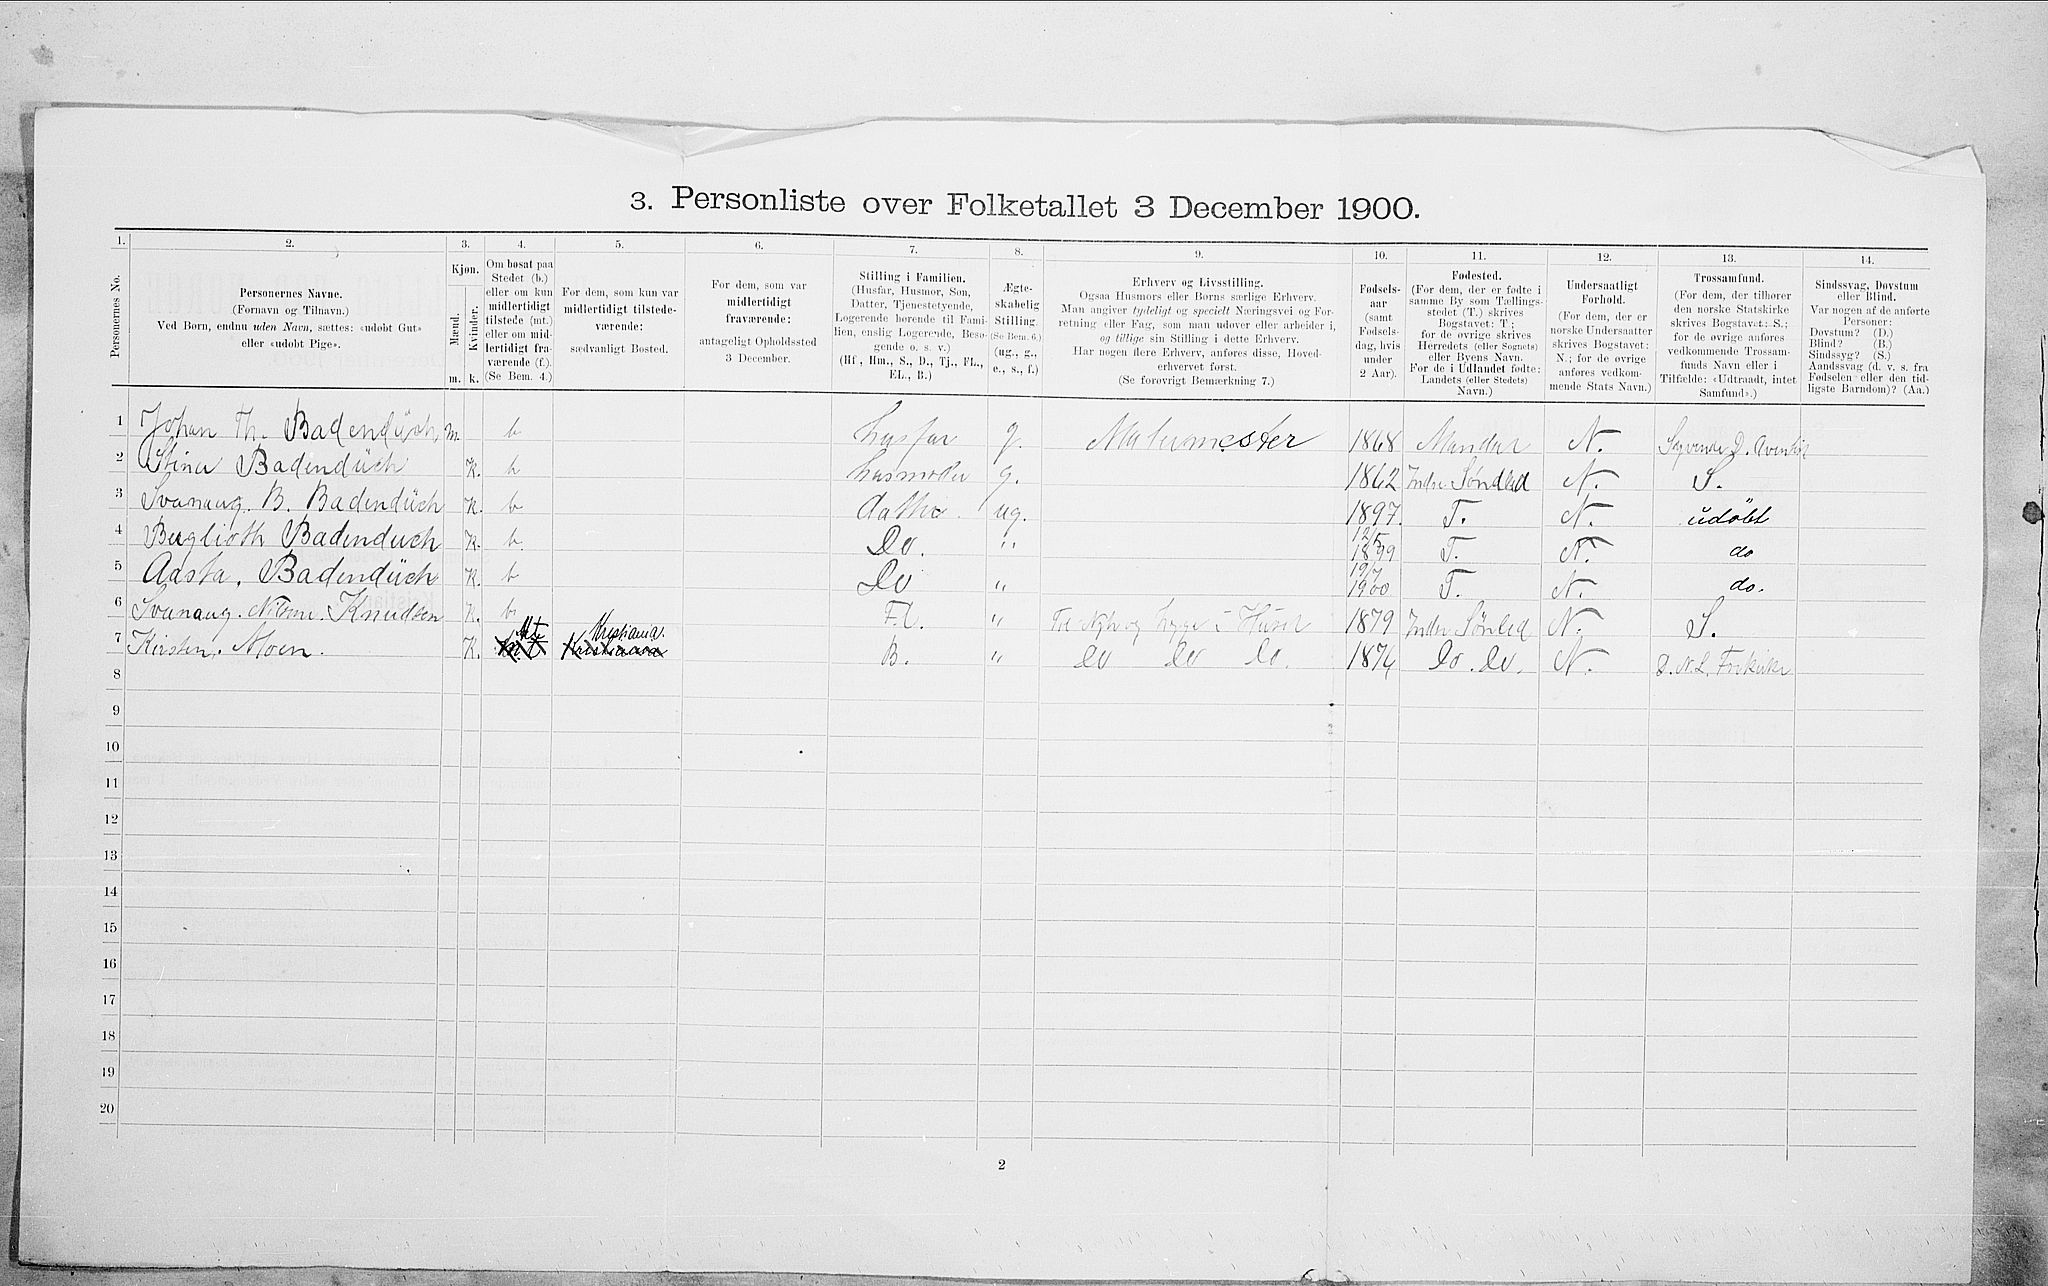 3. Personliste over Folketallet 3 December 1900.
1. 2. 3. 4. 5. 6. 7. 8. 9. 10. 11. 12. 13. 14.
Personernes No.
Personernes Navne.
(Fornavn og Tilnavn.)
Ved Børn, endnu uden Navn, sættes: «udøbt Gut»
eller «udøbt Pige».
Kjøn.
Mænd.
Kvinder.
m. k.
Om bosat paa
Stedet (b.)
eller om kun
midlertidigt
tilstede (mt.)
eller om mid-
lertidigt fra-
værende (f.).
(Se Bem. 4.)
For dem, som kun var
midlertidigt tilstede-
værende:
sædvanligt Bosted.
For dem, som var
midlertidigt
fraværende:
antageligt Opholdssted
3 December.
Stilling i Familien.
(Husfar, Husmor, Søn,
Datter, Tjenestetyende,
Logerende hørende til Fami-
lien, enslig Logerende, Besø-
gende o. s. v.)
(Hf., Hm., S., D., Tj., FL.,
EL., B.)
Ægte-
skabelig
Stilling.
(Se Bem. 6.)
(ug., g.,
e., s., f.)
Erhverv og Livsstilling.
Ogsaa Husmors eller Børns særlige Erhverv.
Man angiver tydeligt og specielt Næringsvei og For-
retning eller Fag, som man udøver eller arbeider i,
og tillige sin Stilling i dette Erhverv.
Har nogen flere Erhverv, anføres disse, Hoved-
erhvervet først.
(Se forøvrigt Bemærkning 7.)
Fødsels-
aar
(samt
Fødsels-
dag, hvis
under
2 Aar).
Fødested.
(For dem, der er fødte i
samme By som Tællings-
stedet (T.) skrives
Bogstavet: T.;
for de øvrige skrives
Herredets (eller Sognets)
eller Byens Navn.
For de i Udlandet fødte:
Landets (eller Stedets)
Navn.)
Undersaatligt
Forhold.
(For dem, der er
norske Undersaatter
skrives Bogstavet:
N.; for de øvrige
anføres vedkom-
mende Stats Navn.)
Trossamfund.
(For dem, der tilhører
den norske Statskirke
skrives Bogstavet: S.;
for de øvrige anføres
vedkommende Trossam-
funds Navn eller i
Tilfælde: «Udtraadt, intet
Samfund».)
Sindssvag, Døvstum
eller Blind.
Var nogen af de anførte
Personer:
Døvstum? (D.)
Blind? (B.)
Sindssyg? (S.)
Aandssvag (d. v. s. fra
Fødselen eller den tid-
ligste Barndom)? (Aa.)
1 Johan Th. Badendüch m. b husfar g. Malermester 1868 Mandal N. Syvende D.
2 Stina Badendüch K. b husmoder g. 1862 Indre Søndled N. S.
3 Svanaug. B. Badendüch K. b datter ug. 1897. T. N. udøbt
4 Badenduch K. b. Do. " 12/5 1899 T. N. do
5 Aasta. Badendüch K. b Do " 19/7 1900 T. N. do.
6 Svanaug. Knudsen K. b. FL. " og i Huset 1879 Indre Sønled N. S.
7 Kirsten. Moen. K. Mt Kristiania. B. " Do Do Do. 1876 Do. Do. N. D. N. L. Frikirke
8
9
10
11
12
13
14
15
16
17
18
19
20
2